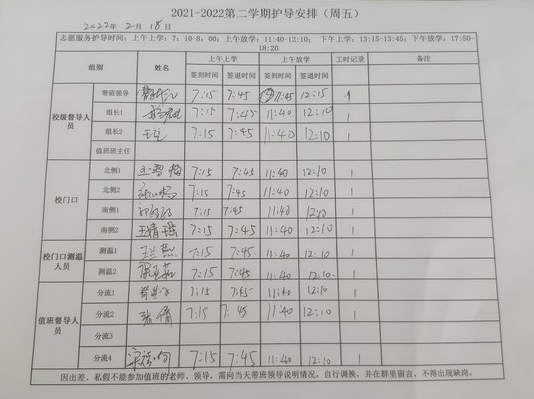 2021-2022第二学期护导安排（周五）
2022年2月18日
志愿服务护导时间：上午上学：7：10-8：00；上午放学：11:40-12:10；下午上学：13:15-13:45；下午放学：17:50-18:20
组别 姓名 上午上学 上午放学 工时记录 备注
签到时间 签退时间 签到时间 签退时间
校级督导人员 带班领导 7:15 7:45 11:45 12:15 1
组长1 7:15 7:45 11:40 12:10 1
组长2 7:15 7:45 11:40 12:10 1
值班班主任
校门口 北侧1 7:15 7:45 11:40 12:10 1
北侧2 7:15 7:45 11:40 12:10 1
南侧1 7:15 7:45 11:40 12:10 1
南侧2 王精瑶 7:15 7:45 11:40 12:10 1
校门口测温人员 测温1 7:15 7:45 11:40 12:10 1
测温2 7:15 7:45 11:40 12:10 1
值班督导人员 分流1 7:15 7:45 11:40 12:10 1
分流2 张倩 7:15 7:45 11:40 12:10 1
分流3
分流4 7:15 7:45 11:40 12:10 1
因出差、私假不能参加值班的老师、领导，需向当天带班领导说明情况，自行调换，并在群里留言，不得出现缺岗。